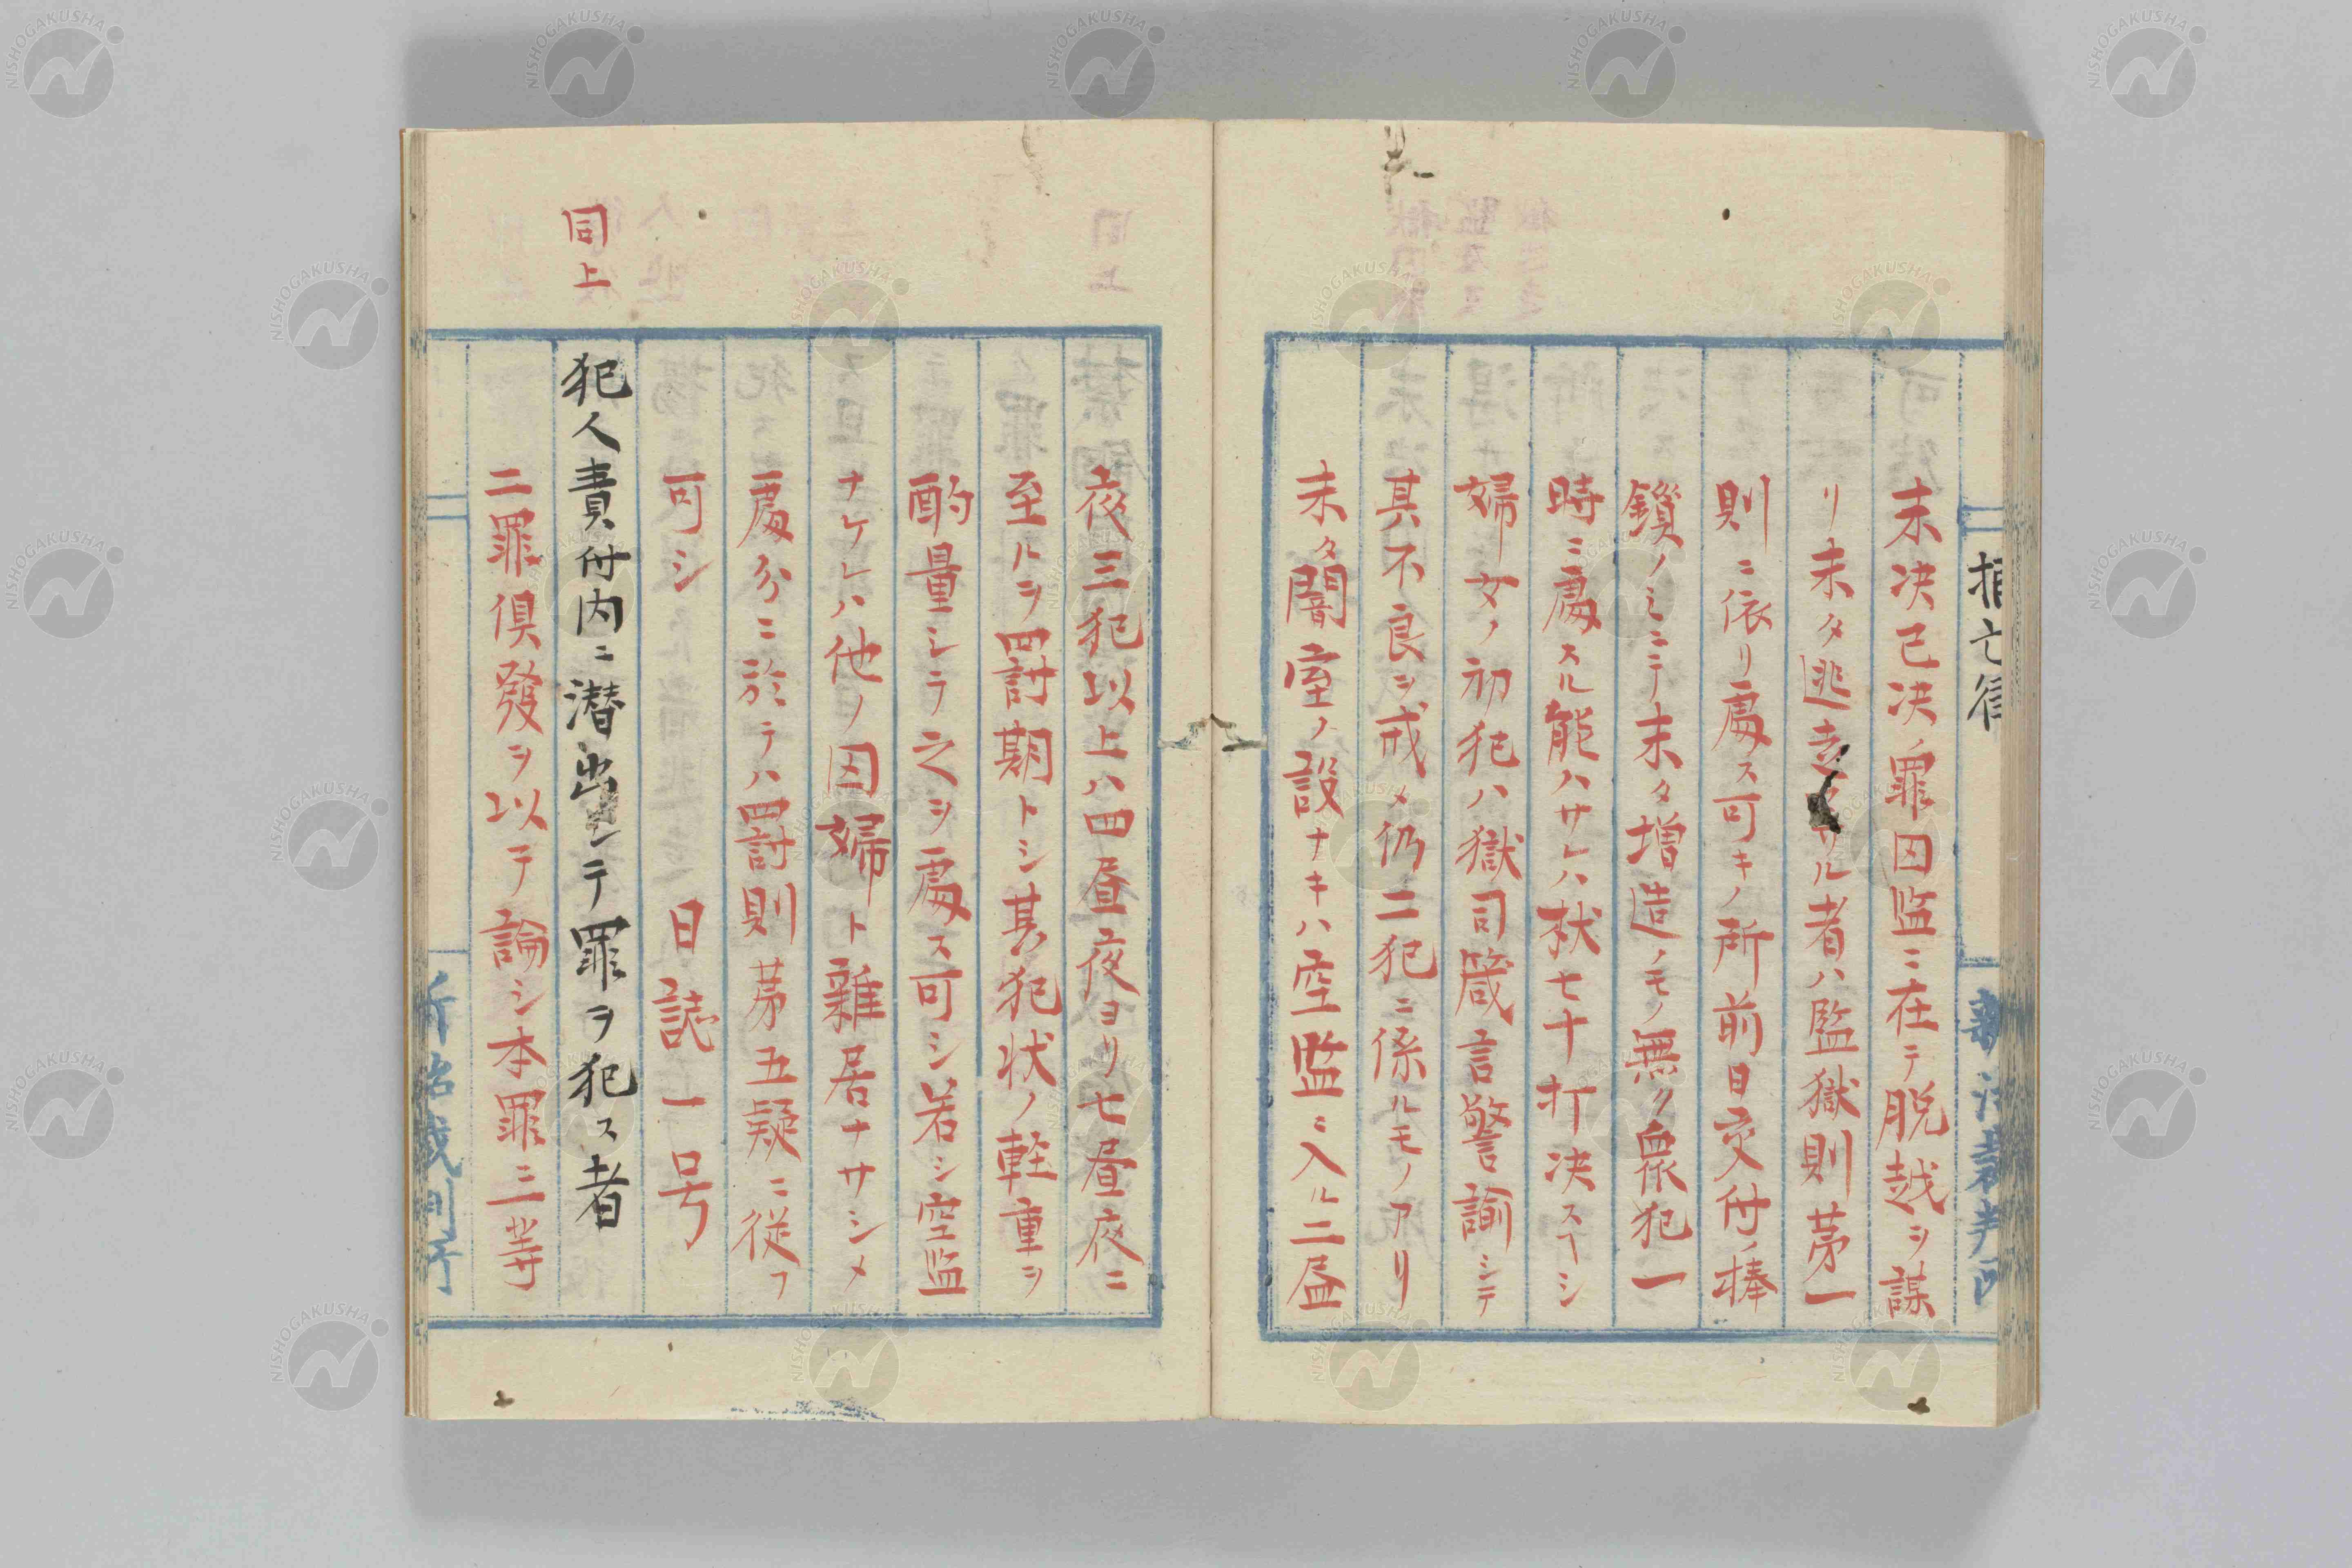 捕亡律
新治裁判所
未決已決ノ罪囚監ニ在テ脱越ヲ謀
リ未タ逃走セサル者ハ監獄則苐一
則ニ依リ處ス可キノ所前日交付ノ棒
鎖ノミニテ未タ増造ノモノ無ク衆犯一
時ニ處スル能ハサレハ杖七十打決スヘシ
婦女ノ初犯ハ獄司箴言警諭シテ
其不良ヲ戒メ仍二犯ニ係ルモノアリ
未タ闇室ノ設ナキハ空監ニ入ル二昼
夜三犯以上ハ四昼夜ヨリ七昼夜ニ
至ルヲ罰期トシ其犯状ノ軽重ヲ
酌量シテ之ヲ處ス可シ若シ空監
ナケレハ他ノ囚婦ト雜居ナサシメ
處分ニ於テハ罰則苐五疑ニ従フ
可シ　日誌一号
同上
犯人責付内ニ潜出シテ罪ヲ犯ス者
二罪倶發ヲ以テ論シ本罪三等
新治裁判所
NISHOGAKUSHA